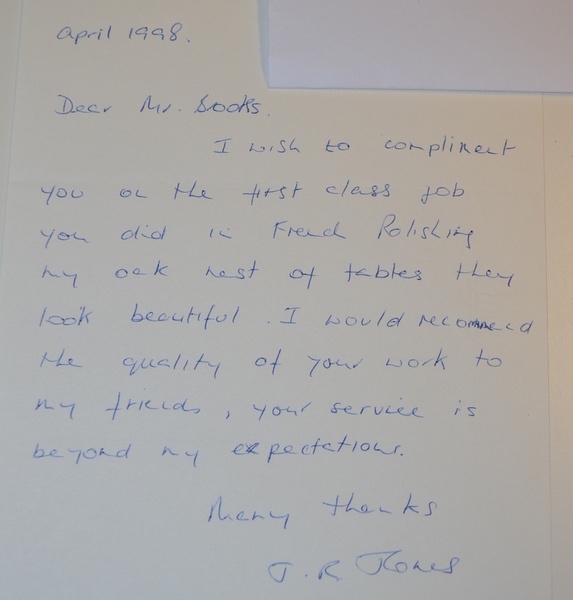 April 1998.
Dear Mr. Sooks.
I wish to compliment
you on the first class job
you did in French Polishing
my oak nest of tables they
look beautiful. I would recommend
the quality of your work to
my friends, your service is
beyond my expectations.
Many thanks
J. R. Jones